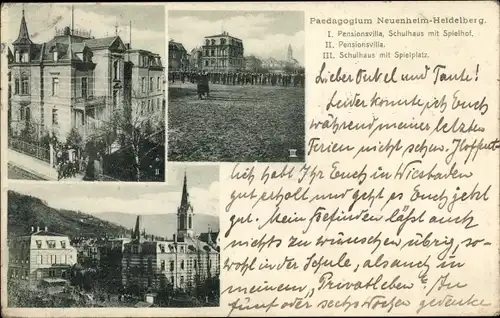 Paedagogium Neuenheim-Heidelberg.
I. Pensionsvilla, Schulhaus mit Spielhof.
II. Pensionsvilla.
III. Schulhaus mit Spielplatz.
Lieber Onkel und Tante!
Leider konnte ich Euch
während meiner letzten
Ferien nicht sehen. Hoffent
lich habt Ihr Euch in Wiesbaden
gut erholt und geht es Euch jetzt
gut. Mein Befinden läßt auch
nichts zu wünschen übrig, so-
wohl in der Schule, als auch in
meinem „Privatleben“. In
fünf oder sechs Wochen gedenke
II